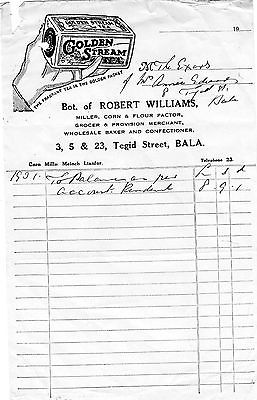 GOLDEN STREAM
TEA
GOLDEN
STREAM
TEA.
THE FRAGRANT TEA IN THE GOLDEN PACKET
19
The Exors
of Mrs Annie Edwards
8 Tegid St,
Bala
Bot. of ROBERT WILLIAMS,
MILLER, CORN & FLOUR FACTOR,
GROCER & PROVISION MERCHANT,
WHOLESALE BAKER AND CONFECTIONER.
3, 5 & 23, Tegid Street, BALA.
Corn Mills: Meloch Llanfor. Telephone 23.
1931. To Balance as per £ s d
account Rendered 8 9 1